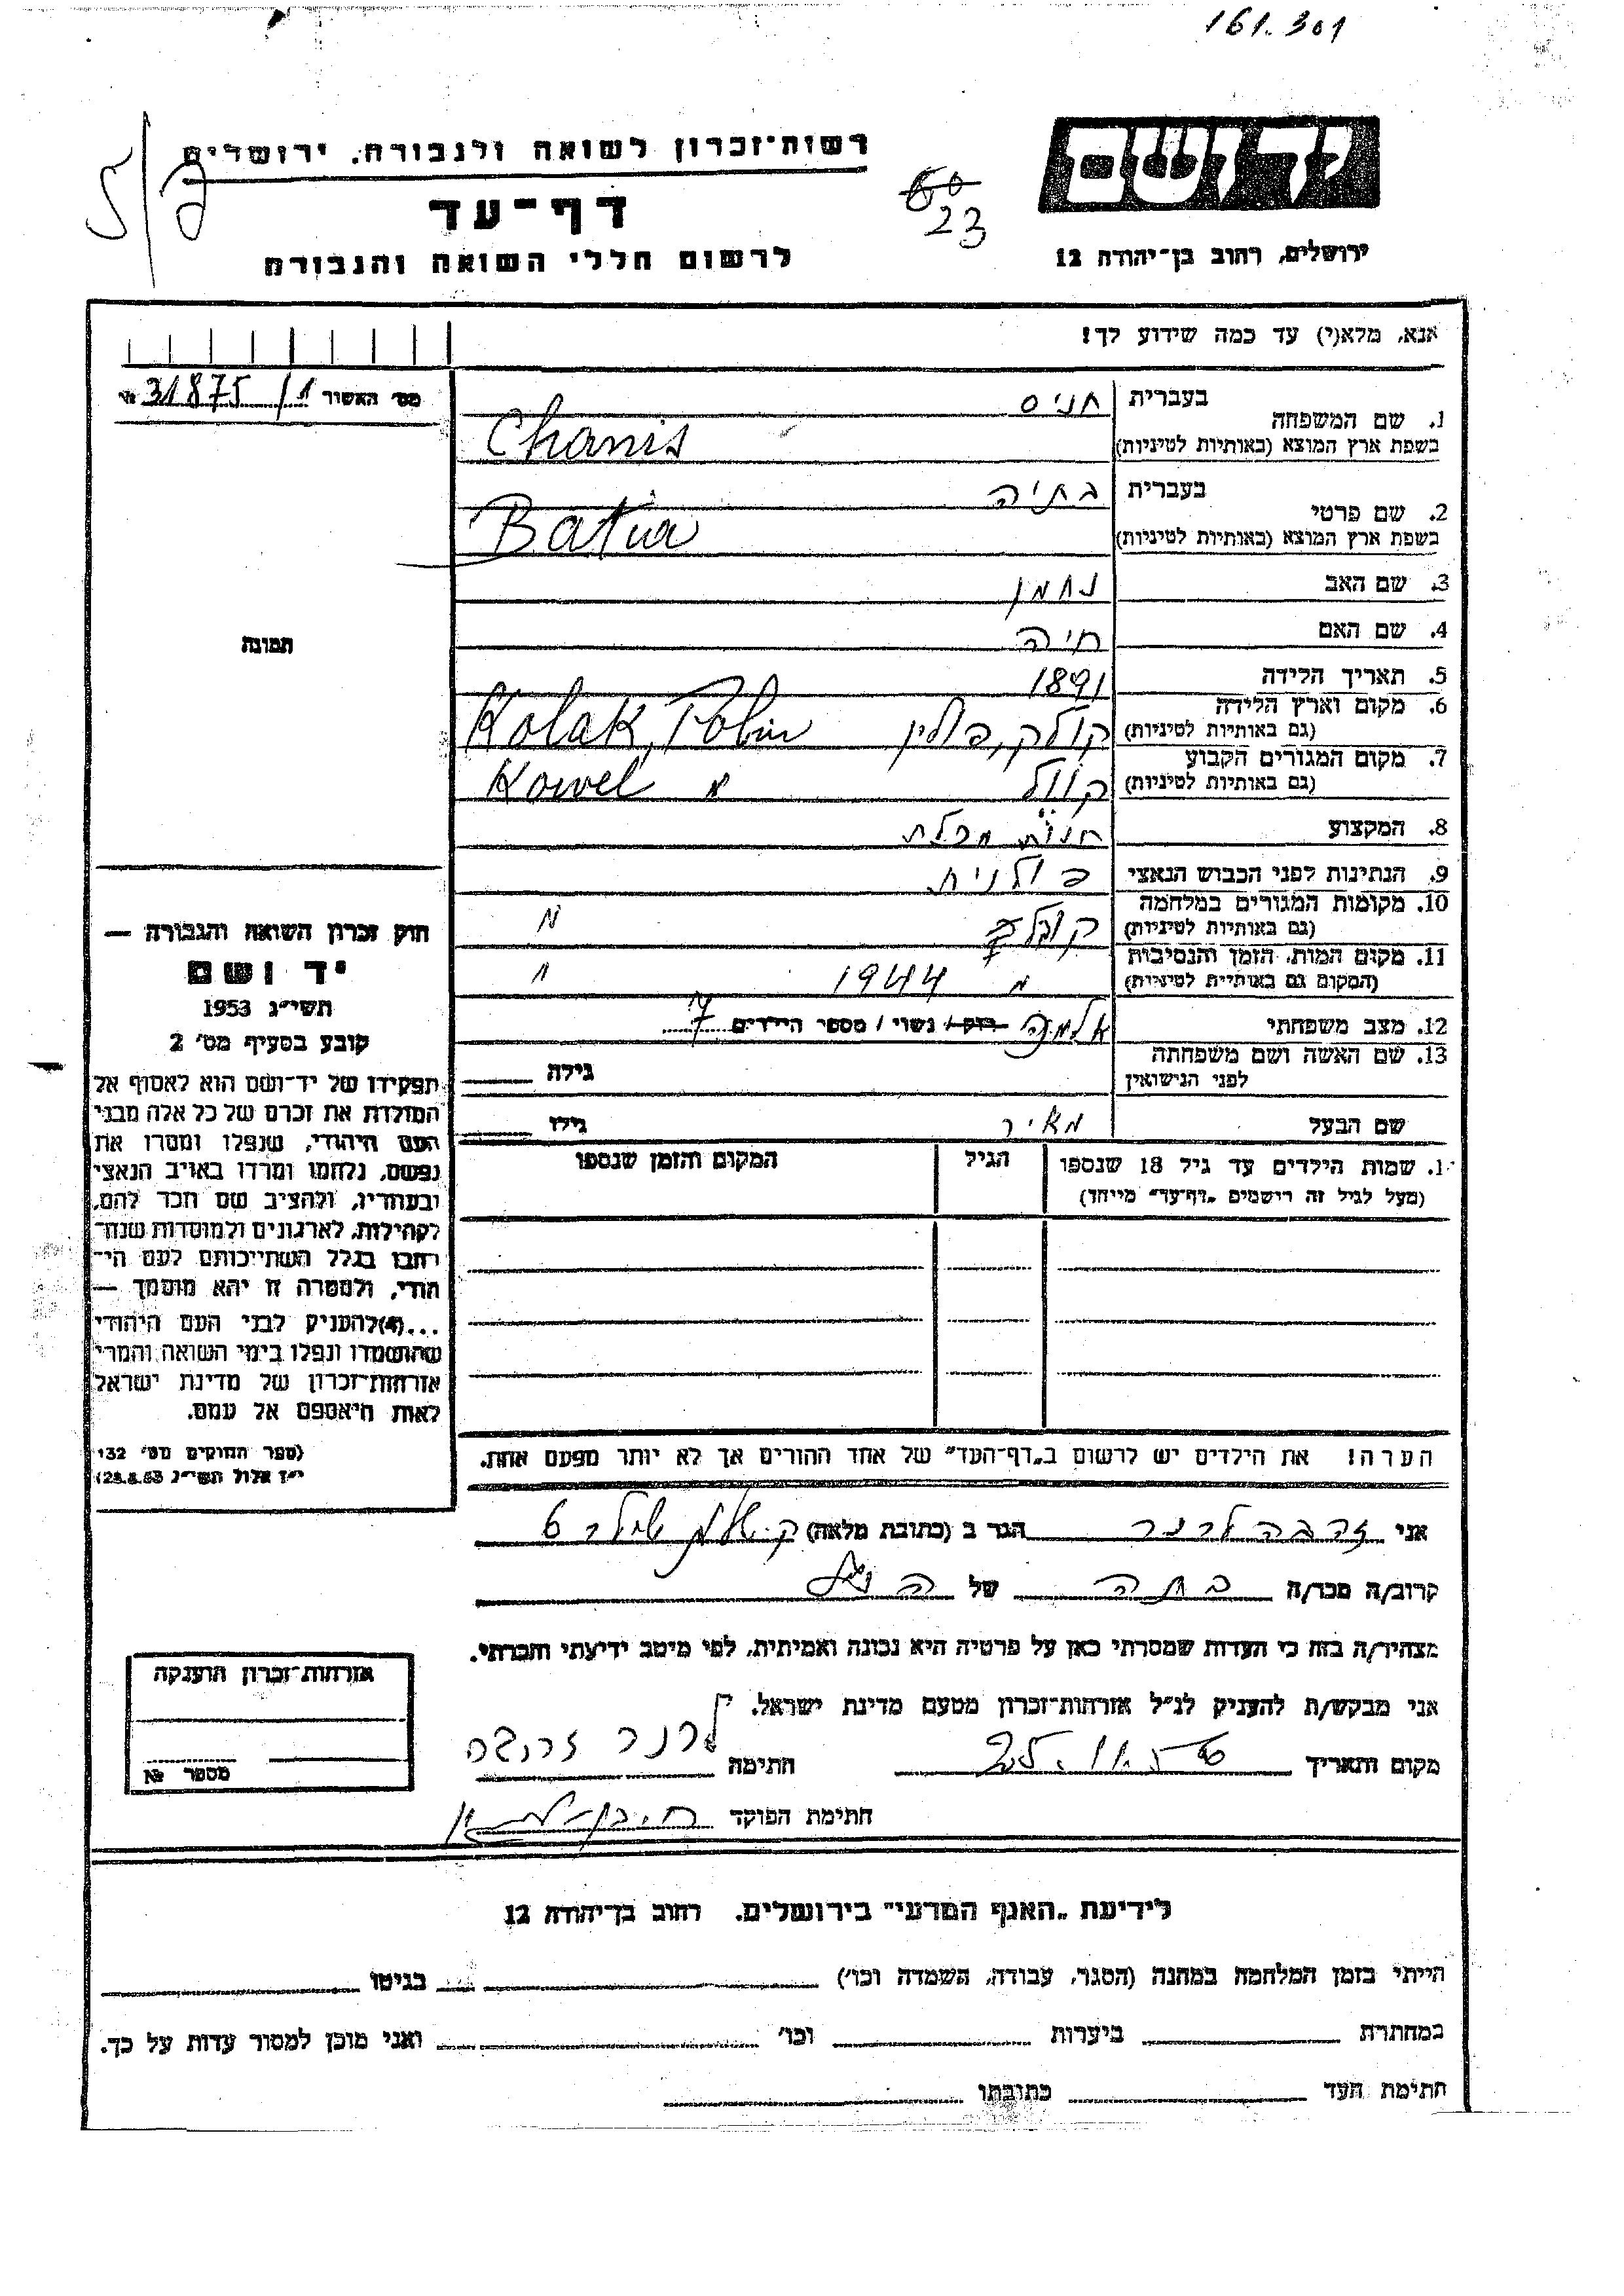 161.301
רשות־זכרון לשואה ולגבורה, ירושלים
דף־עד
לרשום חללי השואה והגבורה
60
23
יד ושם
ירושלים, רחוב בן־יהודה 12
אנא, מלא(י) עד כמה שידוע לך!
מס׳ האשור 31875/1
תמונה
1. שם המשפחה בעברית חניס
בשפת ארץ המוצא (באותיות לטיניות) Chanis
2. שם פרטי בעברית בתיה
בשפת ארץ המוצא (באותיות לטיניות) Batia
3. שם האב נחמן
4. שם האם חיה
5. תאריך הלידה 1891
6. מקום וארץ הלידה (גם באותיות לטיניות) קולק, פולין Kolak, Polin
7. מקום המגורים הקבוע (גם באותיות לטיניות) קוול Kowel
8. המקצוע חנות מכלת
9. הנתינות לפני הכבוש הנאצי פולנית
10. מקומות המגורים במלחמה (גם באותיות לטיניות)
11. מקום המות, הזמן והנסיבות (המקום גם באותיות לטיניות) 1944
12. מצב משפחתי אלמנה רוק / נשוי / מספר הילדים 7
13. שם האשה ושם משפחתה לפני הנישואין גילה
שם הבעל מאיר גילו
1. שמות הילדים עד גיל 18 שנספו
(מעל לגיל זה רישמים „דף־עד" מייחד)
הגיל
המקום והזמן שנספו
הערה! את הילדים יש לרשום ב„דף־העד" של אחד ההורים אך לא יותר מפעם אחת.
חוק זכרון השואה והגבורה —
יד ושם
תשי״ג 1953
קובע בסעיף מס׳ 2
תפקידו של יד־ושם הוא לאסוף אל
המולדת את זכרם של כל אלה מבני
העם היהודי, שנפלו ומסרו את
נפשם, נלחמו ומרדו באויב הנאצי
ובעוזריו, ולהציב שם וזכר להם,
לקהילות, לארגונים ולמוסדות שנח־
רבו בגלל השתייכותם לעם הי־
הודי, ולמטרה זו יהא מוסמך —
...(4)להעניק לבני העם היהודי
שהושמדו ונפלו בימי השואה והמרי
אזרחות־זכרון של מדינת ישראל
לאות היאספם אל עמם.
(ספר החוקים מס׳ 132
י״ז אלול תשי״ג 28.8.53)
אני זהבה לרנר הגר ב (כתובת מלאה) ק.
קרוב/ה מכר/ה בתה של הנ״ל
מצהיר/ה בזה כי העדות שמסרתי כאן על פרטיה היא נכונה ואמיתית, לפי מיטב ידיעתי והכרתי.
אני מבקש/ת להעניק לנ״ל אזרחות־זכרון מטעם מדינת ישראל.
מקום ותאריך חתימה לרנר זהבה
חתימת הפוקד
אזרחות־זכרון הוענקה
מספר №
לידיעת „האגף המדעי" בירושלים. רחוב בן־יהודה 12
הייתי בזמן המלחמה במחנה (הסגר, עבודה, השמדה וכו׳) בגיטו
במחתרת ביערות וכו׳ ואני מוכן למסור עדות על כך.
חתימת העד כתובתו